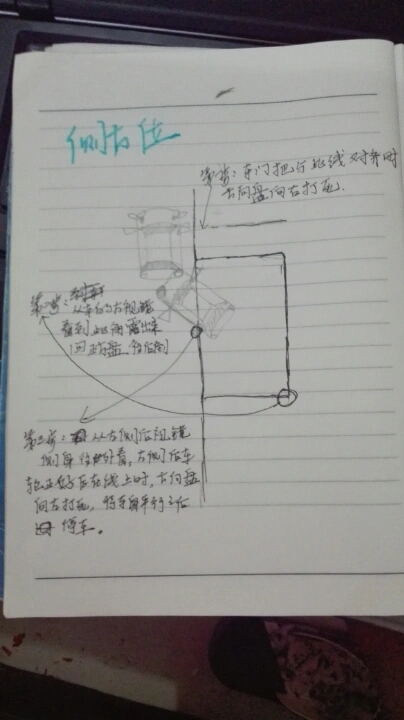 侧方位
第一步：车门把手与线对齐时
方向盘向右打死.
第二步：
从车的左视镜
看到此角露出来
回正方向盘 往后倒
第三步：从左侧后视镜
侧身往外看，左侧后车
轮正好压在线上时，方向盘
向左打死，待车身平行之后
停车。